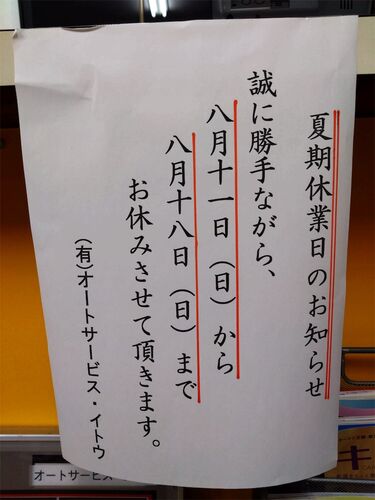 夏期休業日のお知らせ
誠に勝手ながら、
八月十一日（日）から
八月十八日（日）まで
お休みさせて頂きます。
（有）オートサービス・イトウ
オートサービス
キ